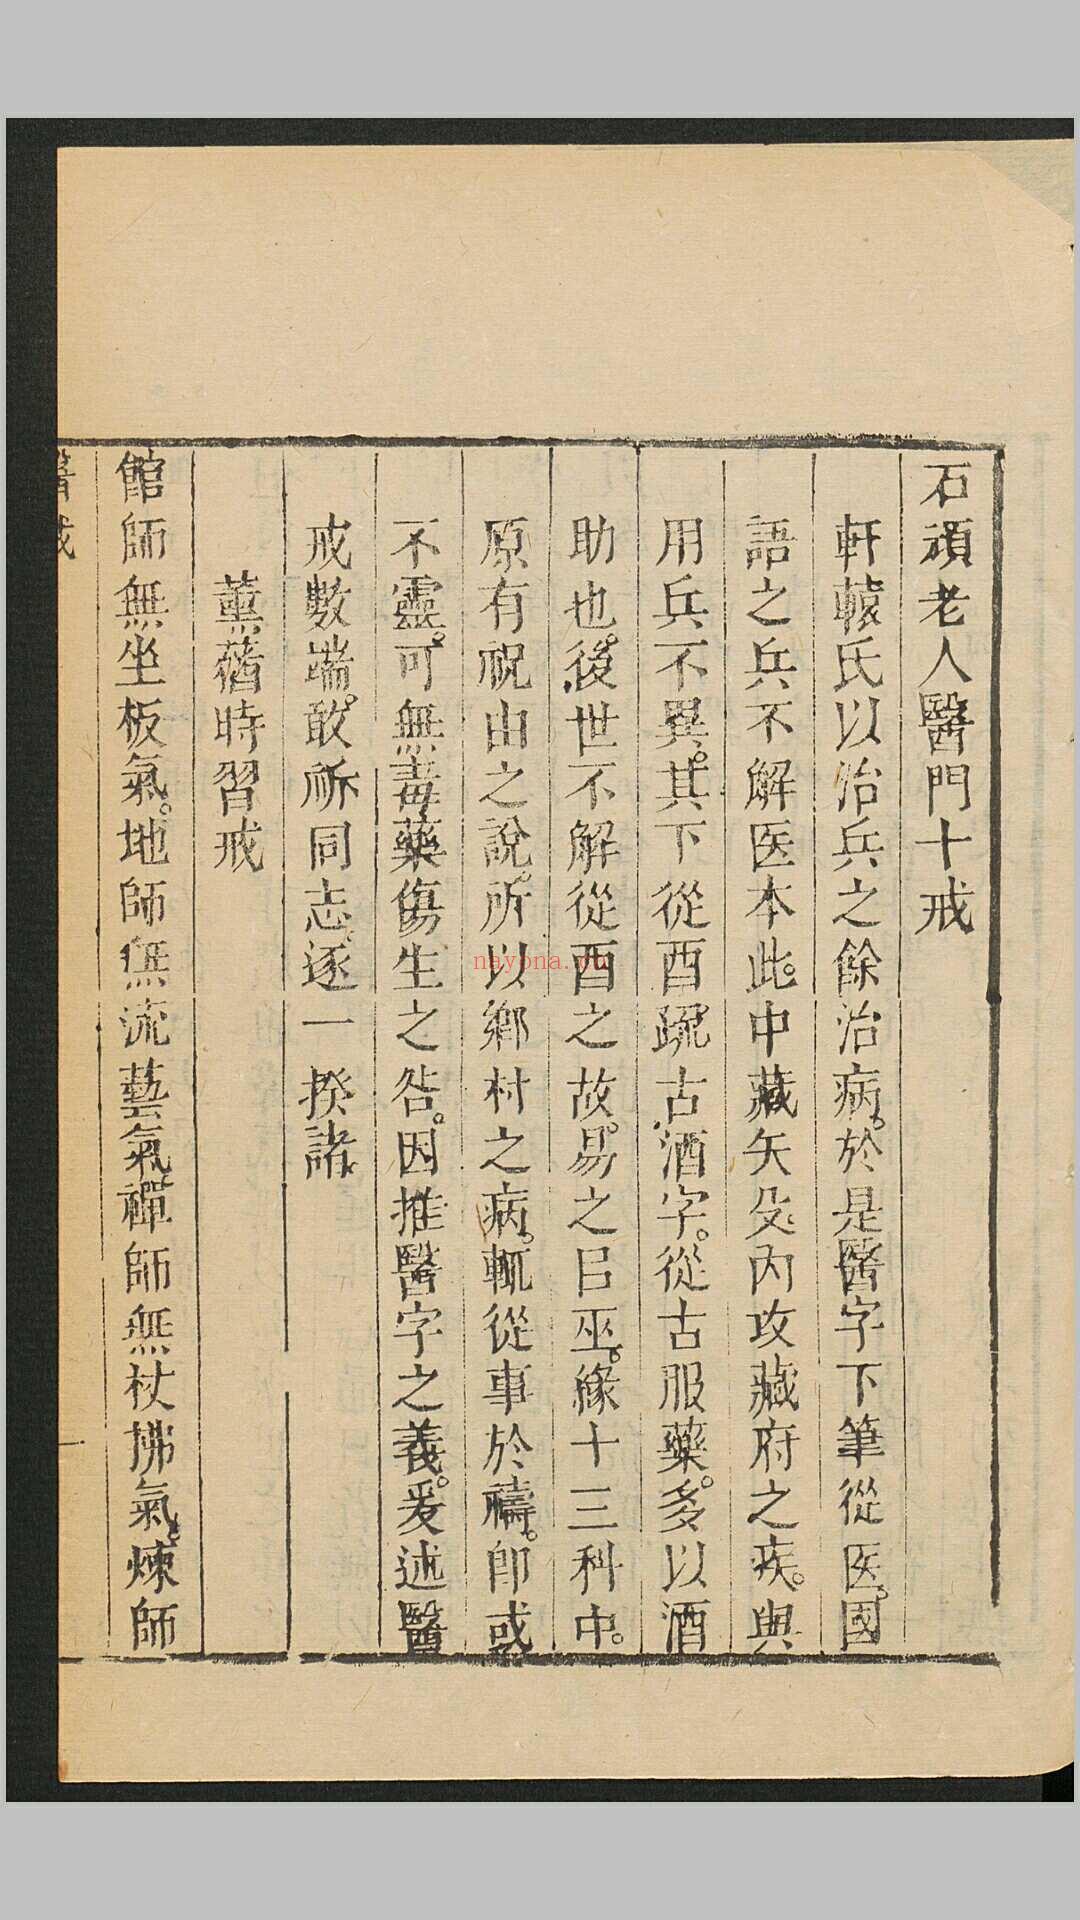 石頑老人醫門十戒
軒轅氏以治兵之餘治病。於是醫字下筆從医。國
語之兵不解医本此。中藏矢殳。內攻藏府之疾。與
用兵不異。其下從酉。䟽古酒字。從古服藥。多以酒
助也。後世不解從酉之故。易之㠯巫。緣十三科中。
原有祝由之說。所以鄉村之病。輒從事於禱。卽或
不靈。可無毒藥傷生之咎。因推醫字之義。爰述醫
戒數端。敢祈同志。逐一揆諸。
薰蕕時習戒
館師無坐板氣。地師無流藝氣。禪師無杖拂氣。煉師
醫戒
一
nayona.cn